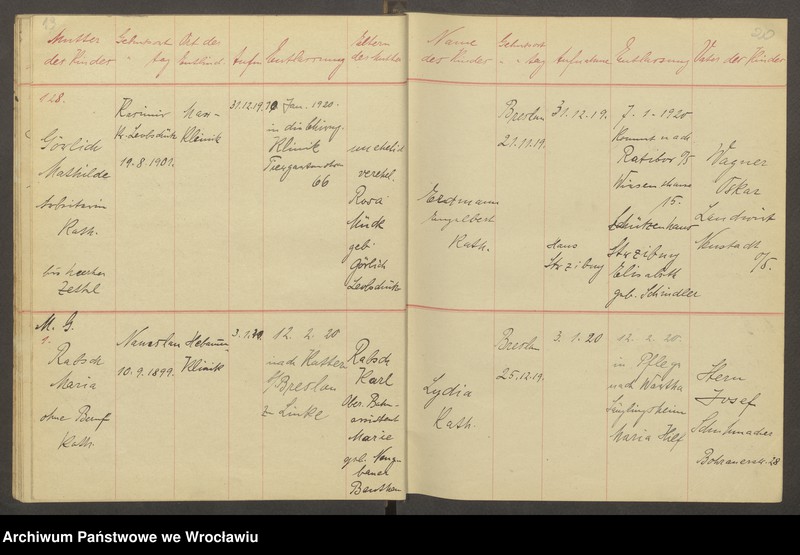 19
Mutter
der Kinder
Geburtsort
" tag
Ort der
Entbind.
Aufn.
Entlassung
Eltern
der Mutter
128.
Görlich
Mathilde
Arbeiterin
Kath.
Kasimir
Kr. Leobschütz
19.8.1901.
Klinik
31.12.19.
10. Jan. 1920.
in die Chirurg.
Klinik
Tiergartenstr.
66
unehelich
verehel.
Rosa
Mück
geb.
Görlich
Leobschütz
M. G.
1.
Rabsch
Maria
ohne Beruf
Kath.
Namslau
10.9.1899.
Hebammen
Klinik
3.1.20
12. 2. 20
nach Kattern
b/Breslau
zu Linke
Rabsch
Karl
Ober. Bahn-
assistent
Marie
geb. Neuge
bauer
Beuthen
20
Name
der Kinder
Geburtsort
" " tag
Aufnahme
Entlassung
Vater der Kinder
Erdmann
Engelbert
Kath.
Breslau
21.11.19.
31.12.19.
Hans
Strzibny
7. 1. 1920
Kommt nach
Ratibor O/S
Waisenhaus
15.
Schützenhaus
Strzibny
Elisabeth
geb. Schindler
Wagner
Oskar
Landwirt
Neustadt
O/S.
Lydia
Kath.
Breslau
25.12.19.
3. 1. 20
12. 2. 20.
in Pflege
nach Wartha
Säuglingsheim
Maria Hilf
Stern
Josef
Schuhmacher
Bohrauerstr. 28
Archiwum Państwowe we Wrocławiu